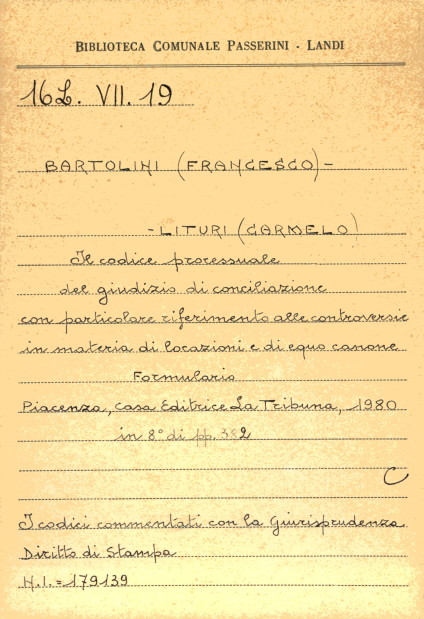 BIBLIOTECA COMUNALE PASSERINI - LANDI
16L. VII. 19
BARTOLINI (FRANCESCO) -
- LITURI (CARMELO)
Il codice processuale
del giudizio di conciliazione
con particolare riferimento alle controversie
in materia di locazioni e di equo canone
Formulario
Piacenza, Casa Editrice La Tribuna, 1980
in 8° di pp. 382
C
I codici commentati con la Giurisprudenza
Diritto di Stampa
N.I. = 179139